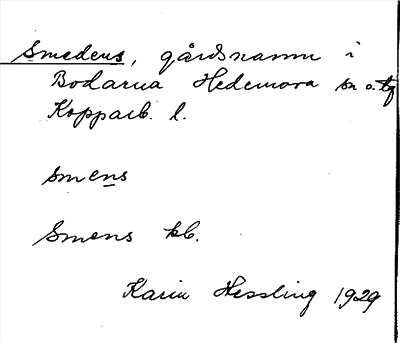 Smedens, gårdsnamn i
Bodarna Hedemora sn o. tg
Kopparb. l.
smens
Smens kb.
Karin Hessling 1929